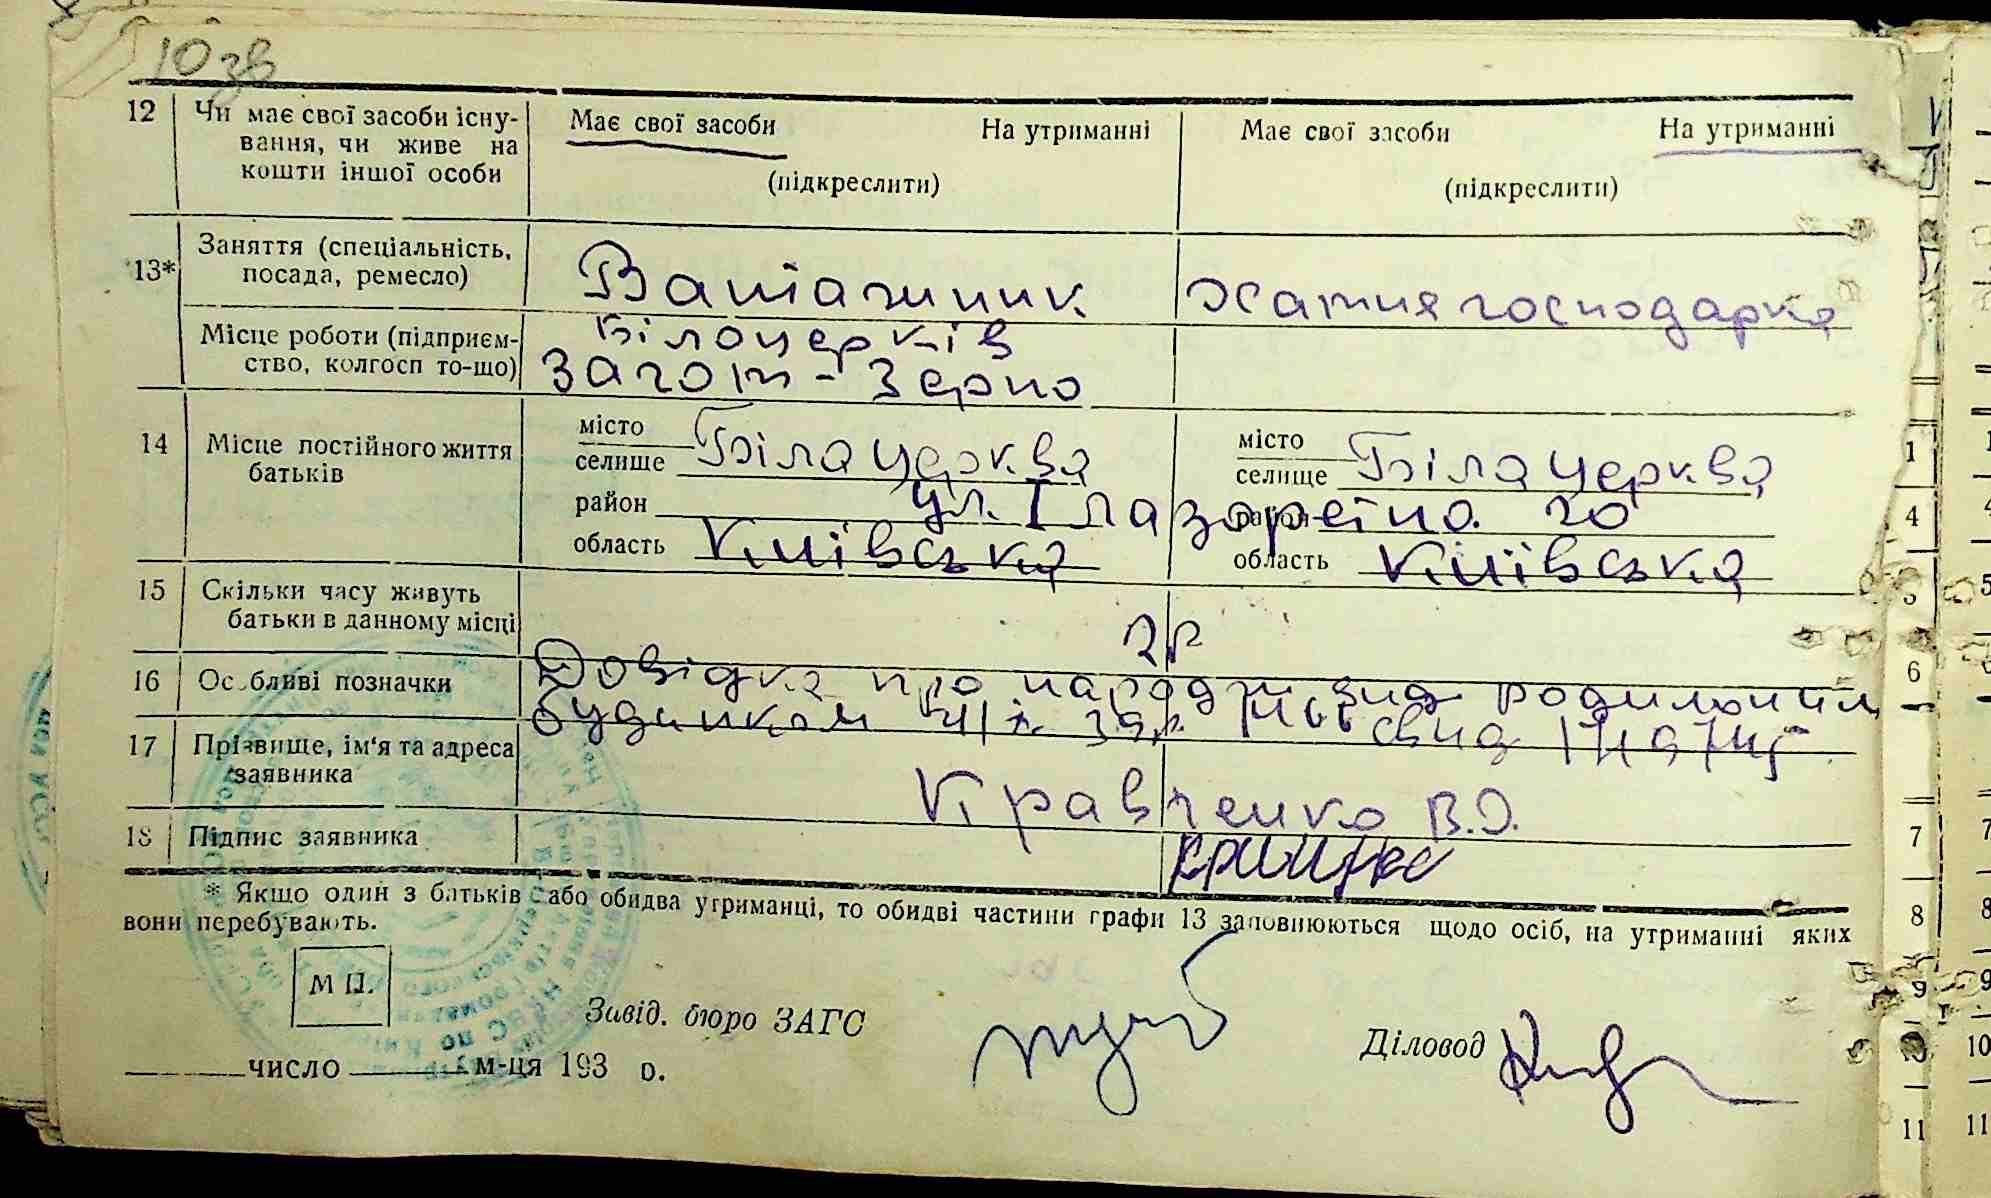 10 зв
12 Чи має свої засоби існу- Має свої засоби На утриманні Має свої засоби На утриманні
вання, чи живе на
кошти іншої особи (підкреслити) (підкреслити)
13* Заняття (спеціальність, посада, ремесло) Вантажник Хатня господарка
Місце роботи (підприєм- Білоцерків
ство, колгосп то-що) Загот-Зерно
14 Місце постійного життя батьків
місто
селище Біла Церква місто
селище Біла Церква
район ул. І район 20
область Київська область Київська
15 Скільки часу живуть
батьки в данному місці 2 р
16 Особливі позначки Довідка про народж вид родильним
будинком
17 Прізвище, ім'я та адреса
заявника Кравченко В.О.
18 Підпис заявника
* Якщо один з батьків або обидва утриманці, то обидві частини графи 13 заповнюються щодо осіб, на утриманні яких
вони перебувають.
М П.
Завід. бюро ЗАГС
Діловод
число м-ця 193 о.
1
4
5
6
7
8
9
10
11